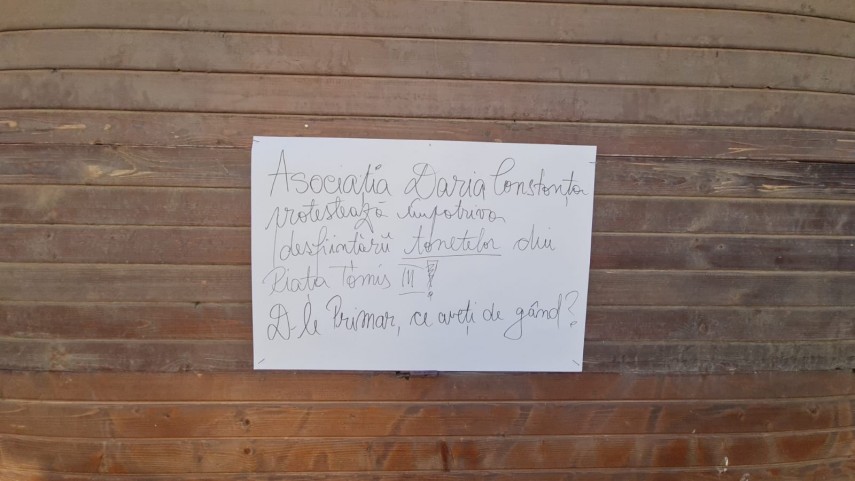 Asociația Daria Constanța
protestează împotriva
desființării tonetelor din
Piața Tomis III!
D-le Primar, ce aveți de gând?